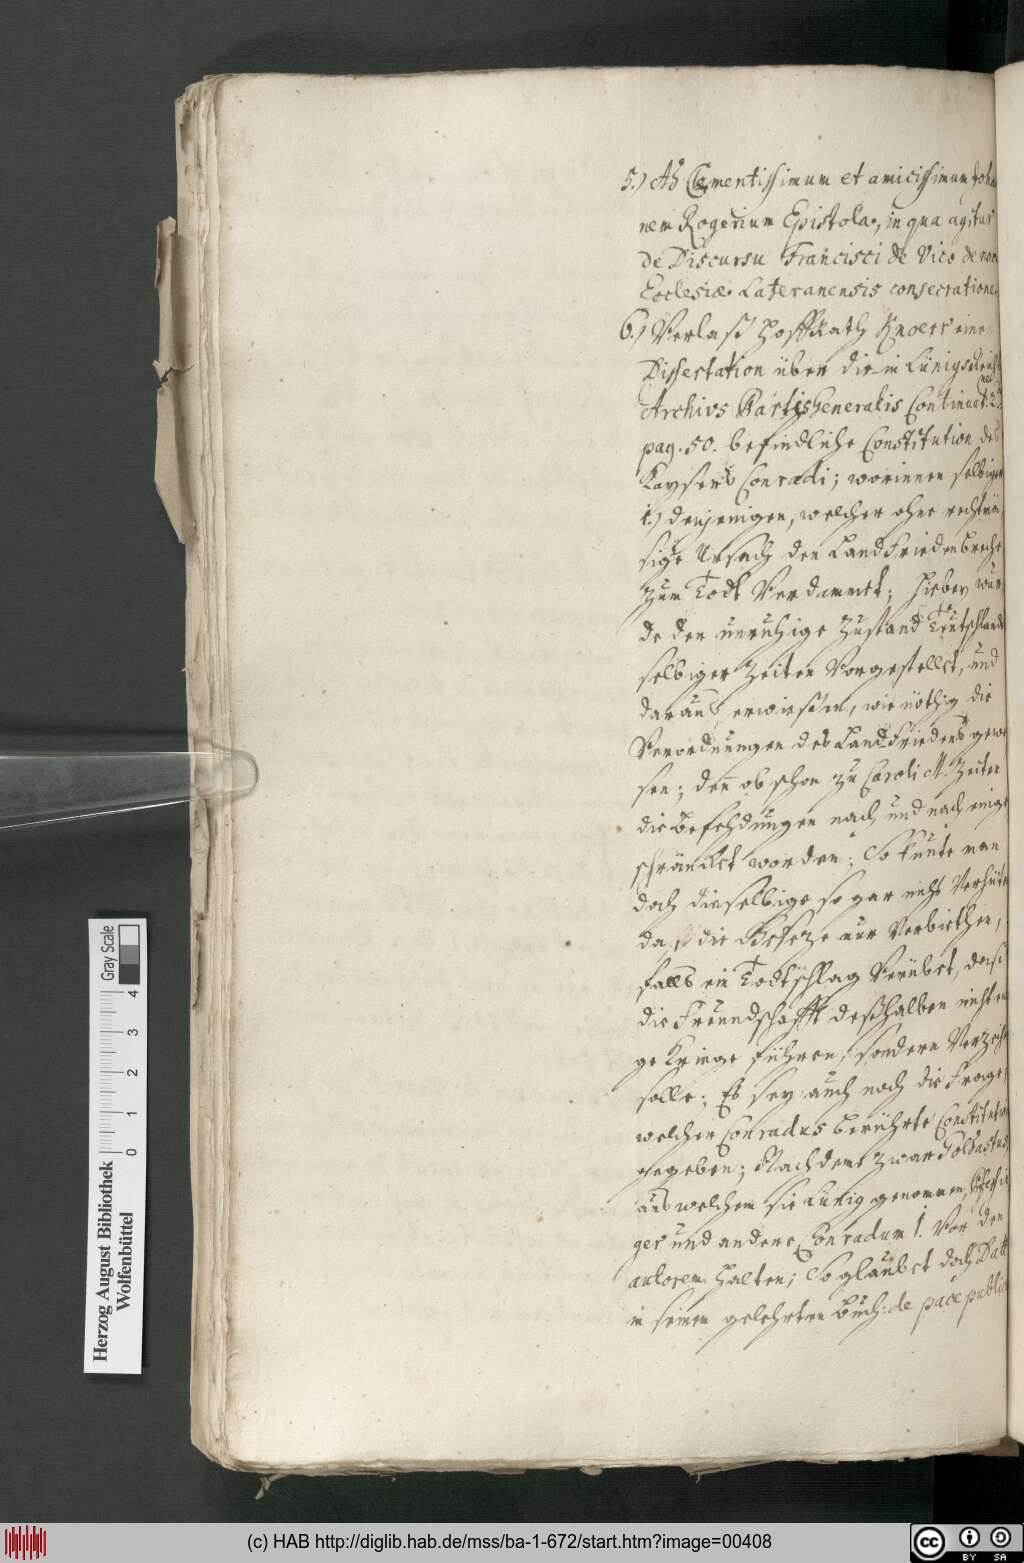 5.) Ad Clementissimum et amicissimum Joha
nem Rogerium Epistola, in qua agitur
de Discursu Francisci de Vico de non
Ecclesiæ Lateranensis consecratione.
6.) Verlaß HoffRath Knoerr eine
Dissertation über die in Lünigs Reichs
Archivs Partis Generalis Continuat: 2
pag. 50. befindliche Constitution des
Kaysers Conradi; worinnen selbiger
1.) denjenigen, welcher ohne rechtmä
sige Ursach den LandFrieden breche
zum Todt Verdammet; Hiebey wur
de der unruhige Zustand Teutschlands
selbiger Zeiten Vorgestellet, und
daraus erwießen, wie nöthig die
Verordnungen des LandFriedens gewe
sen; den ob schon zu Caroli M. Zeiten
die Befehdungen nach und nach einge
schränket worden; So kunte man
doch dieselbige so gar nicht Verhüte
daß die Geseze nur Verbiethen,
falls ein Todtschlag Verübet, daß
die Freundschafft deßhalben nicht
ge Kriege führen, sondern Verzeihe
solle; Es sey auch noch die Frage,
welcher Conradus berührte Constitution
gegeben; Nachdeme zwar Goldastus
aus welchem sie Lünig genommen,
ger und andere Conradum I. Vor den
autorem halten; So glaubet doch Datt
in seinem gelehrten Buch: de pace publica
Herzog August Bibliothek
Wolfenbüttel
0 1 2 3 4
Gray Scale
(c) HAB http://diglib.hab.de/mss/ba-1-672/start.htm?image=00408
cc BY SA